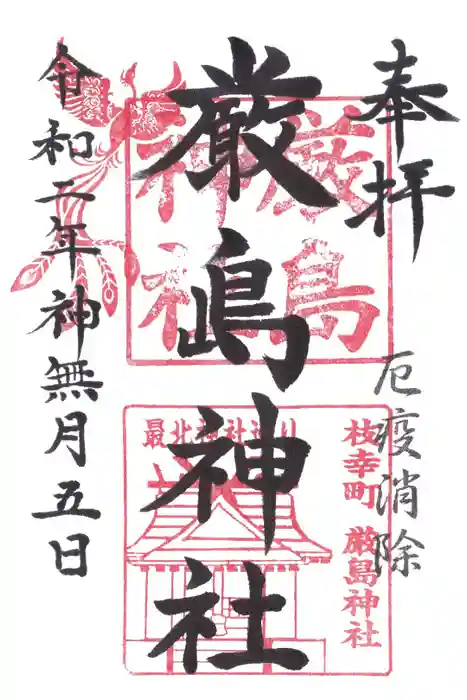 奉拝
厄疫消除
厳嶋神社
令和二年神無月五日
厳島
神社
最北神社巡り
枝幸町 厳島神社